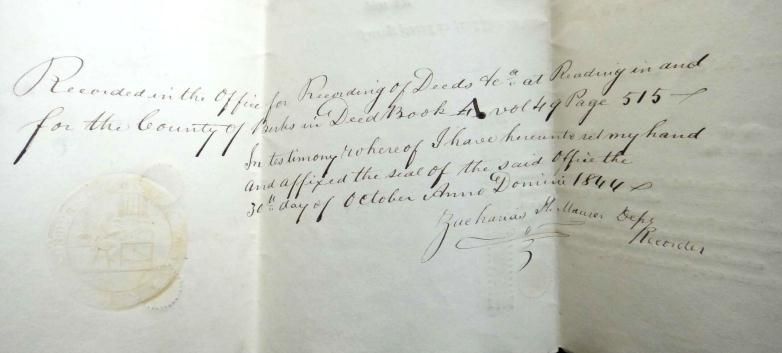 Recorded in the Office for Recording of Deeds &c.a at Reading in and
for the County of Berks in Deed Book vol 49 Page 515
In testimony whereof I have hereunto set my hand
and affixed the seal of the said Office the
30th day of October Anno Domini 1844
Zacharias H. Maurer Depy
Recorder